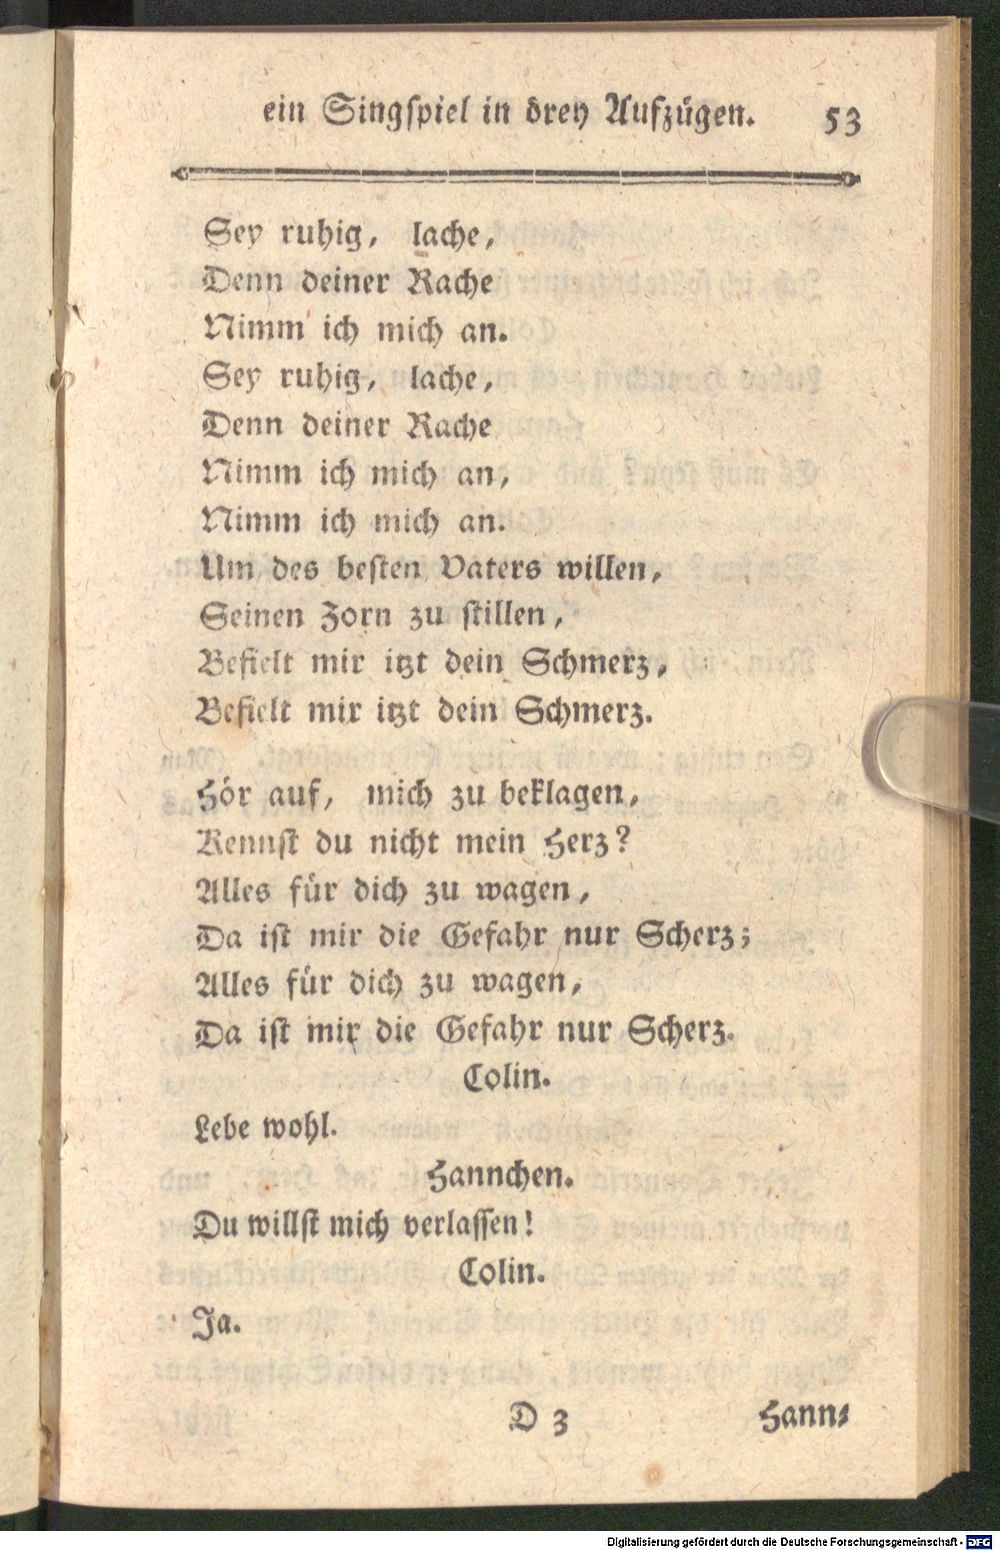 ein Singspiel in drey Aufzügen. 53
Sey ruhig, lache,
Denn deiner Rache
Nimm ich mich an.
Sey ruhig, lache,
Denn deiner Rache
Nimm ich mich an,
Nimm ich mich an.
Um des besten Vaters willen,
Seinen Zorn zu stillen,
Befielt mir itzt dein Schmerz,
Befielt mir itzt dein Schmerz.
Hör auf, mich zu beklagen,
Kennst du nicht mein Herz?
Alles für dich zu wagen,
Da ist mir die Gefahr nur Scherz;
Alles für dich zu wagen,
Da ist mir die Gefahr nur Scherz.
Colin.
Lebe wohl.
Hannchen.
Du willst mich verlassen!
Colin.
Ja.
D 3 Hann⸗
Digitalisierung gefördert durch die Deutsche Forschungsgemeinschaft - DFG